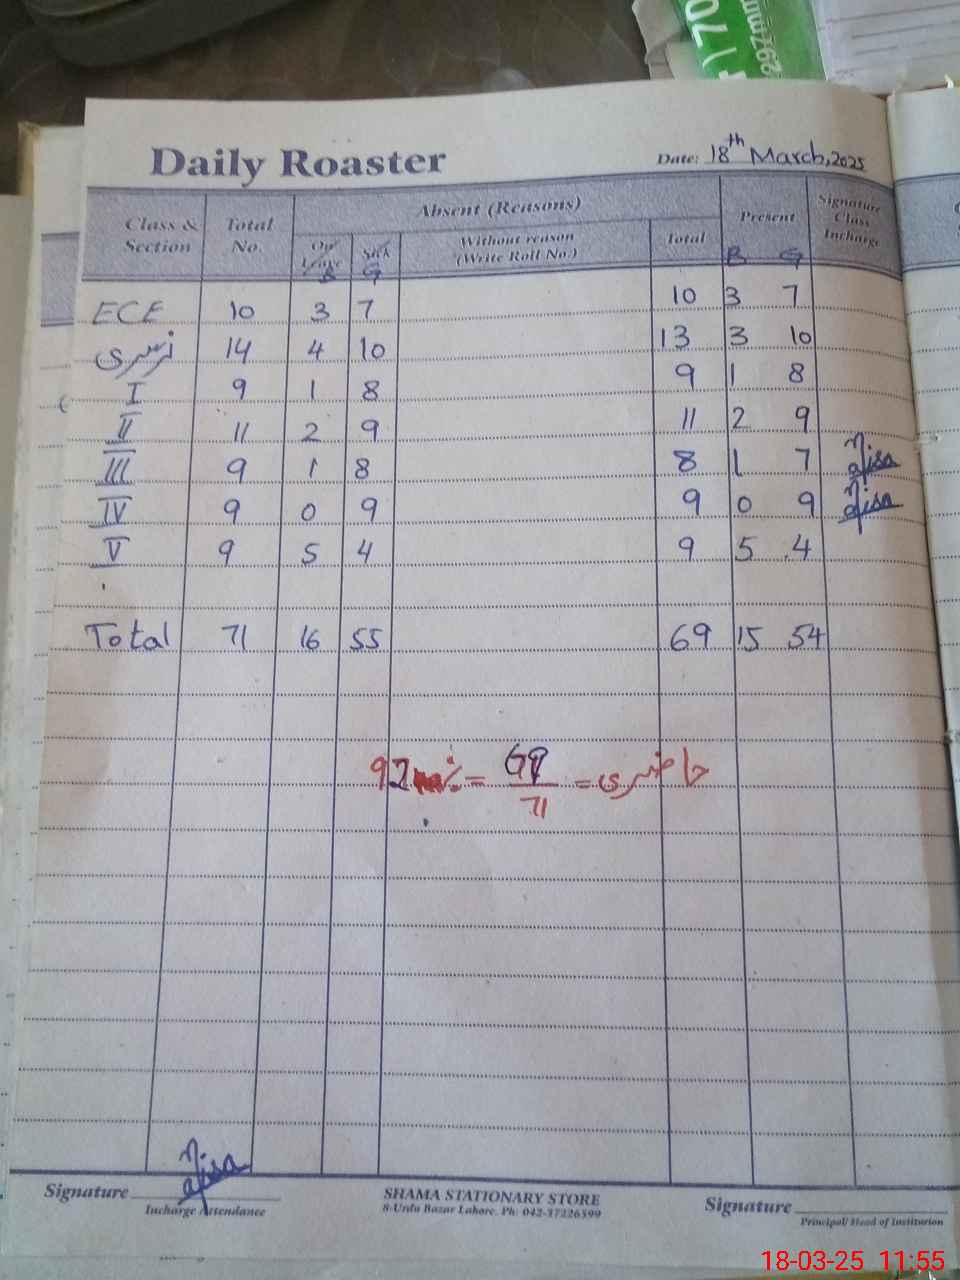 170
Daily Roaster
Date: 18th March, 2025
Class & Section Total No. Absent (Reasons) Present Signature Class Incharge
On Leave Sick Without reason (Write Roll No.) Total
B G B G
ECE 10 3 7 10 3 7
نرسری 14 4 10 13 3 10
I 9 1 8 9 1 8
II 11 2 9 11 2 9
III 9 1 8 8 1 7
IV 9 0 9 9 0 9
V 9 5 4 9 5 4
Total 71 16 55 69 15 54
حاضری = 69/71 = 92%
Signature
Incharge Attendance
SHAMA STATIONARY STORE
8-Urdu Bazar Lahore. Ph: 042-37226599
Signature
Principal/ Head of Institution
18-03-25 11:55